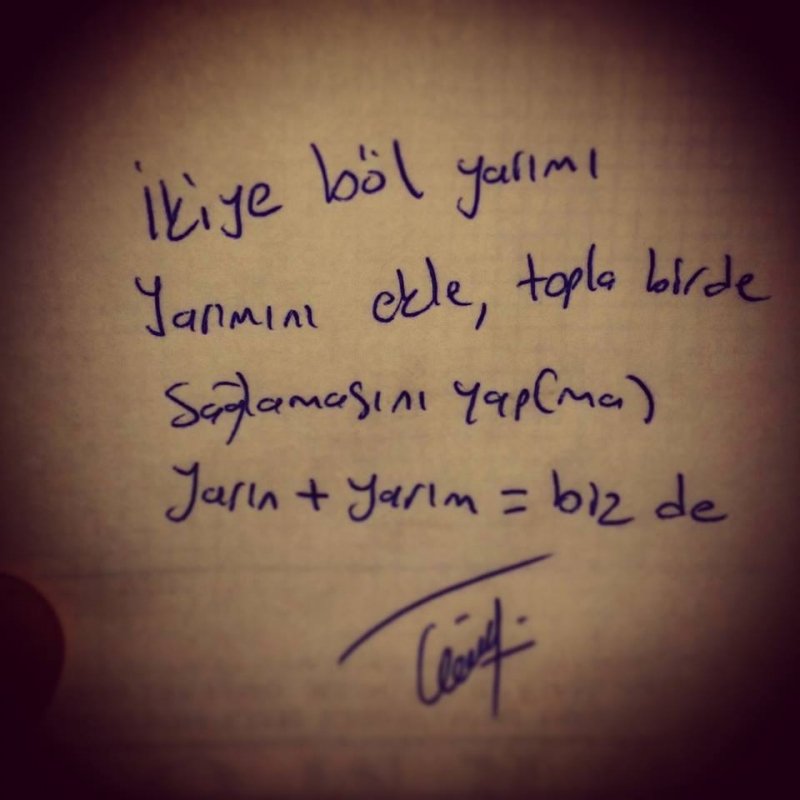 İkiye böl yarımı
Yarımını ekle, topla birde
Sağlamasını yap(ma)
Yarın + yarım = biz de